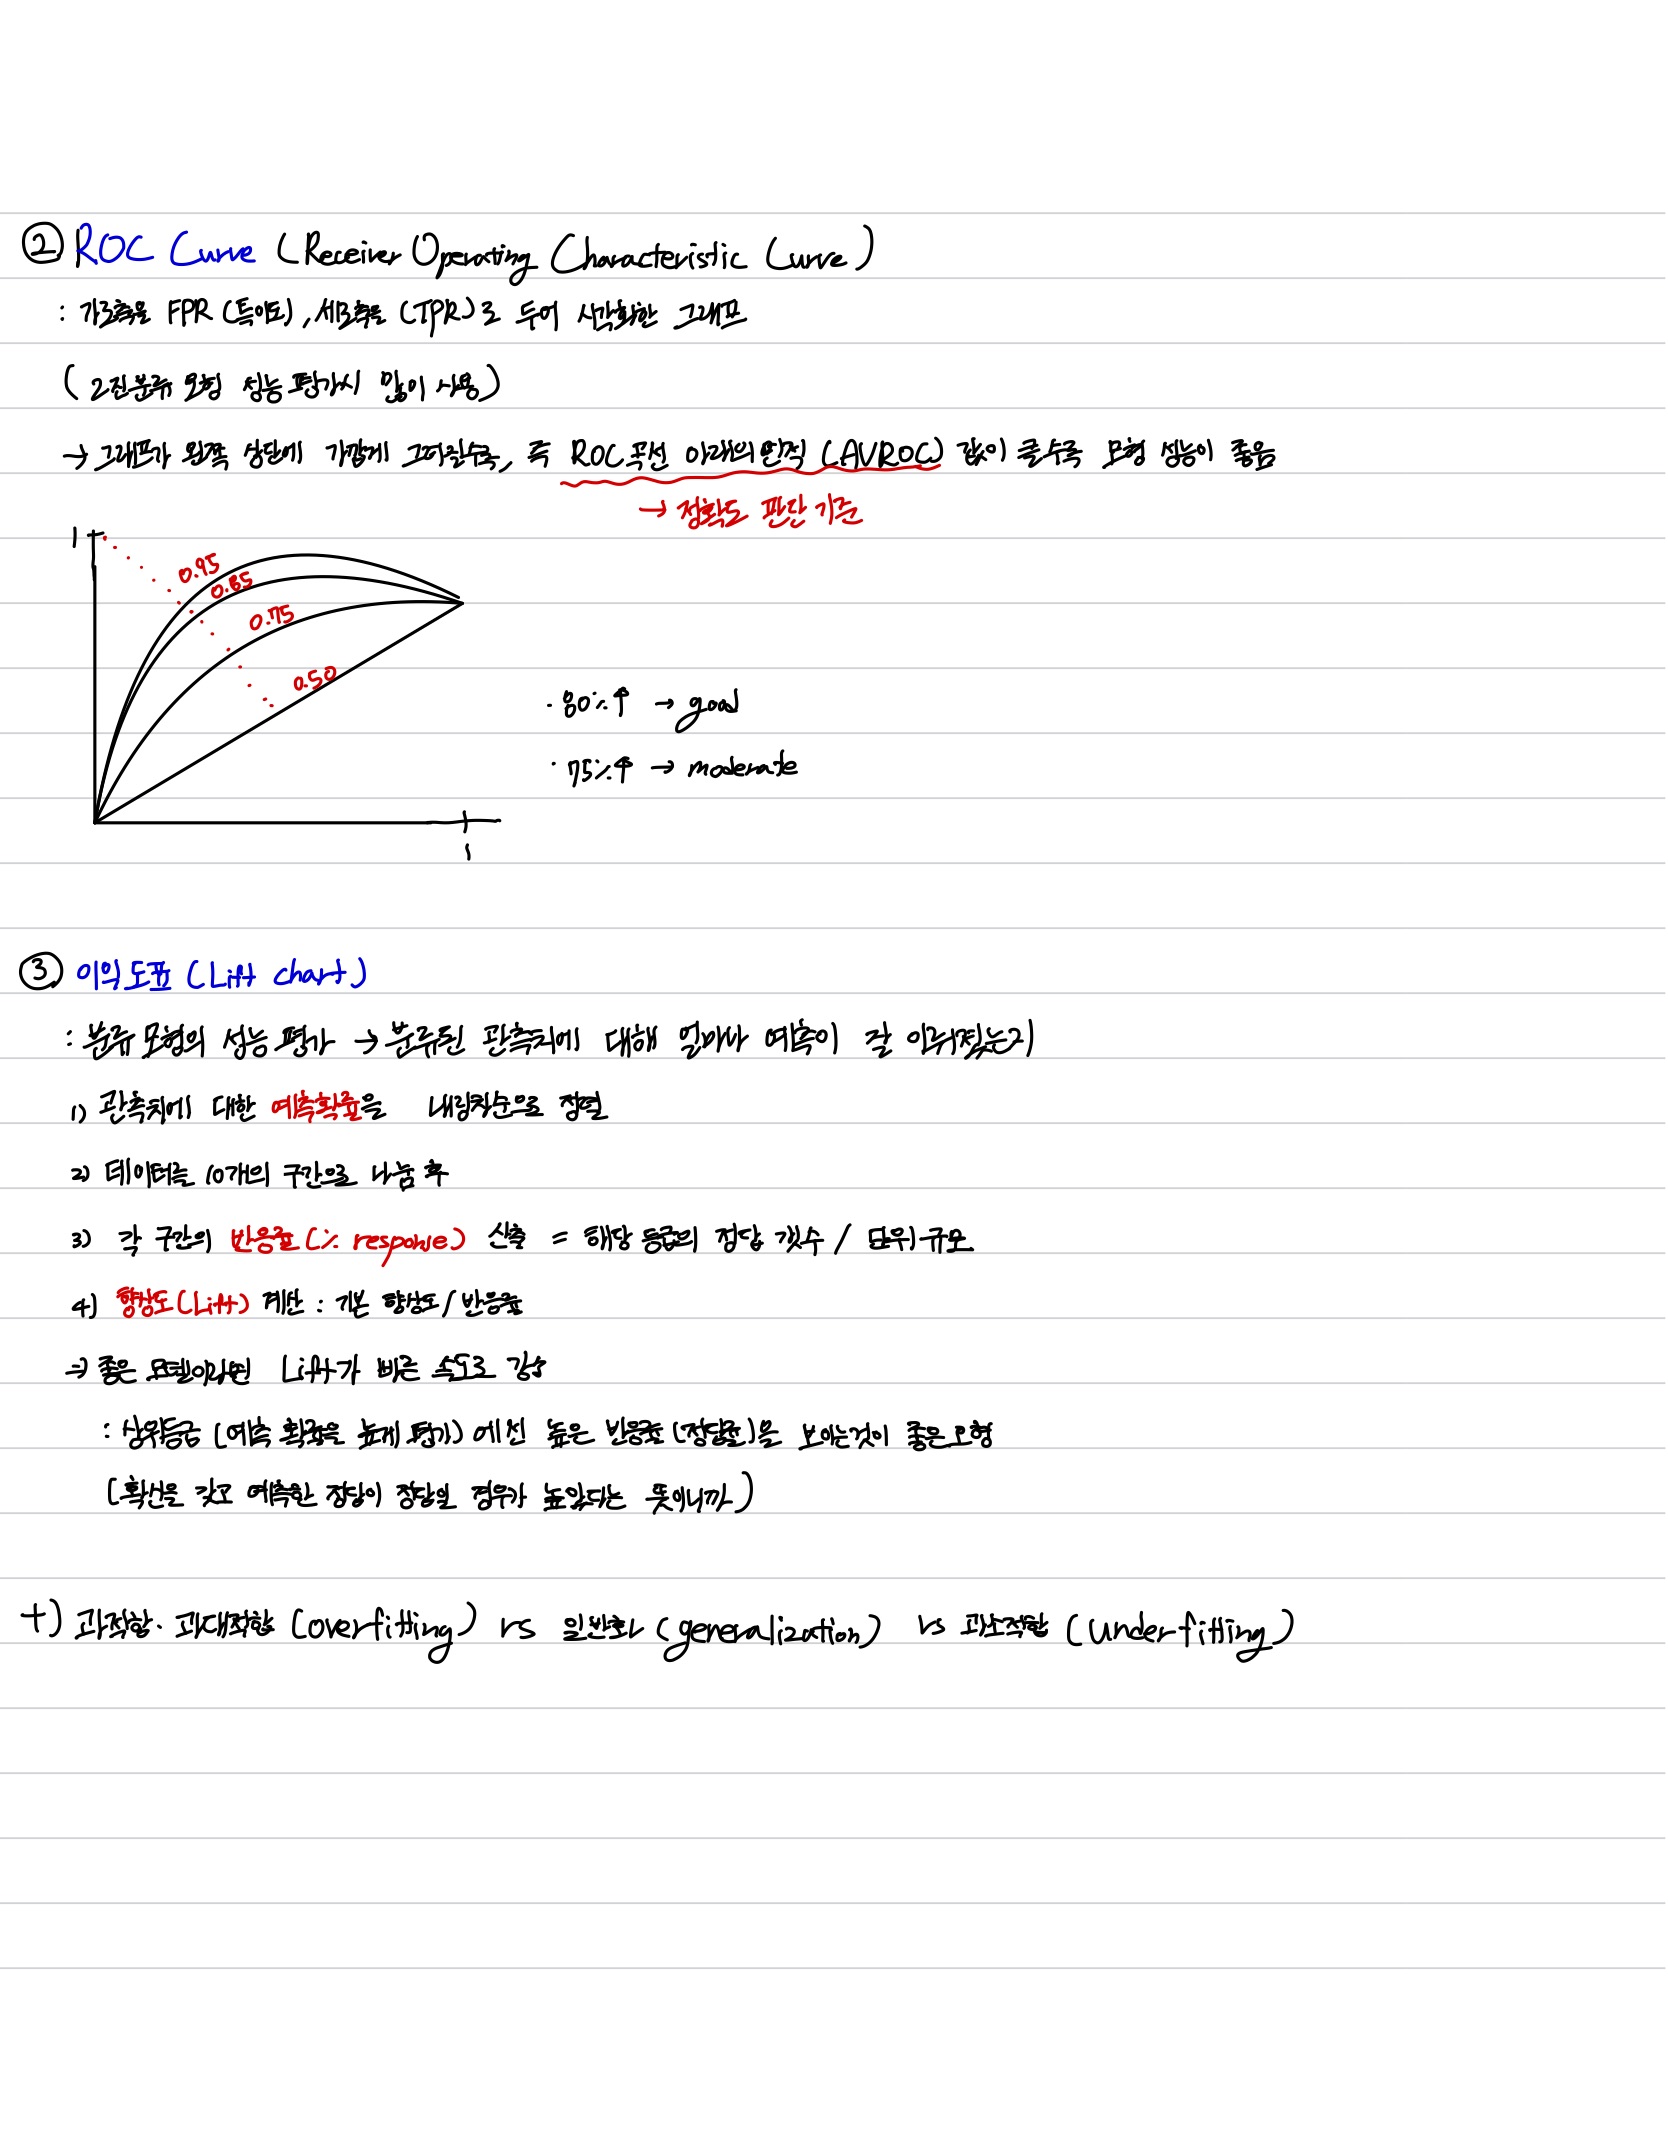 ② ROC Curve (Receiver Operating Characteristic Curve)
: 가로축을 FPR (특이도), 세로축을 (TPR)로 두어 시각화한 그래프
(2진분류 모형 성능 평가시 많이 사용)
→ 그래프가 왼쪽 상단에 가깝게 그려질수록, 즉 ROC곡선 아래의 면적 (AVROC) 값이 클수록 모형 성능이 좋음
→ 정확도 판단 기준
1
0.95
0.85
0.75
0.50
· 80% ↑ → good
· 75% ↑ → moderate
1
③ 이익도표 (Lift chart)
: 분류 모형의 성능 평가 → 분류된 관측치에 대해 얼마나 예측이 잘 이뤄졌는지
1) 관측치에 대한 예측확률을 내림차순으로 정렬
2) 데이터를 10개의 구간으로 나눔 후
3) 각 구간의 반응률 (% response) 산출 = 해당 등급의 정답 갯수 / 단위 규모
4) 향상도 (Lift) 계산 : 기본 향상도 / 반응률
⇒ 좋은 모델이라면 Lift가 빠른 속도로 감소
: 상위등급 (예측 확률을 높게 평가) 에선 높은 반응률 (정답률)을 보이는것이 좋은 모형
(확신을 갖고 예측한 정답이 정답일 경우가 높았다는 뜻이니까)
+) 과적합 · 과대적합 (overfitting) vs 일반화 (generalization) vs 과소적합 (underfitting)